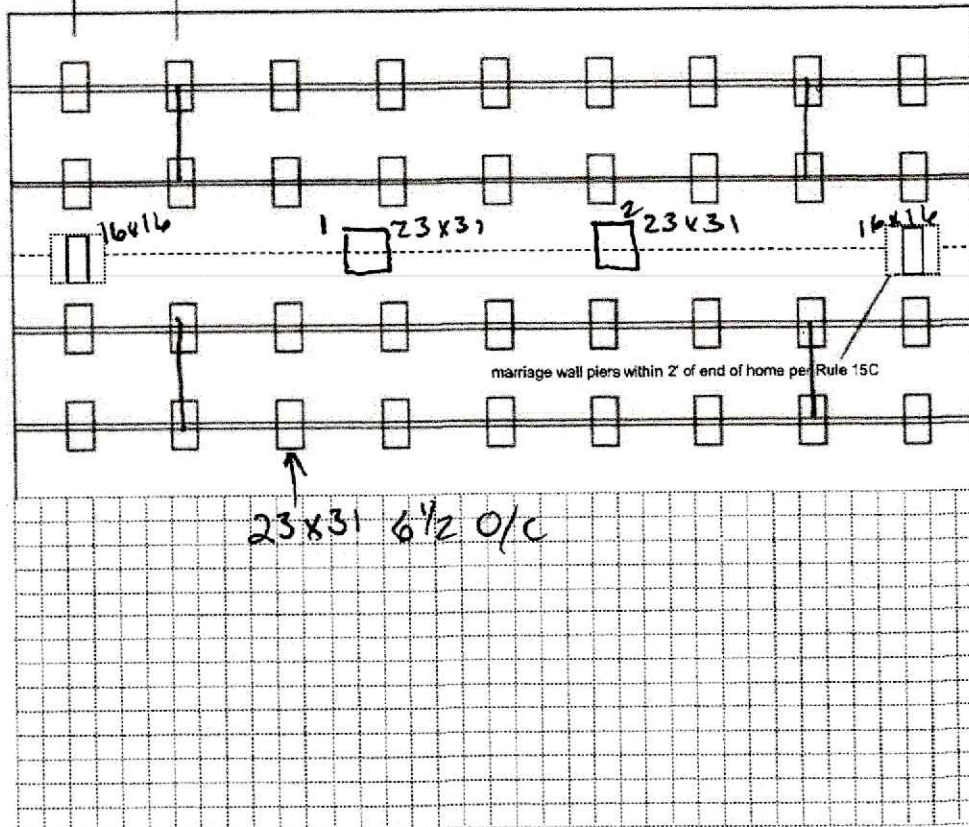 16x16
1
23x31
2
23x31
16x16
marriage wall piers within 2' of end of home per Rule 15C
23x31 6 1/2 O/C